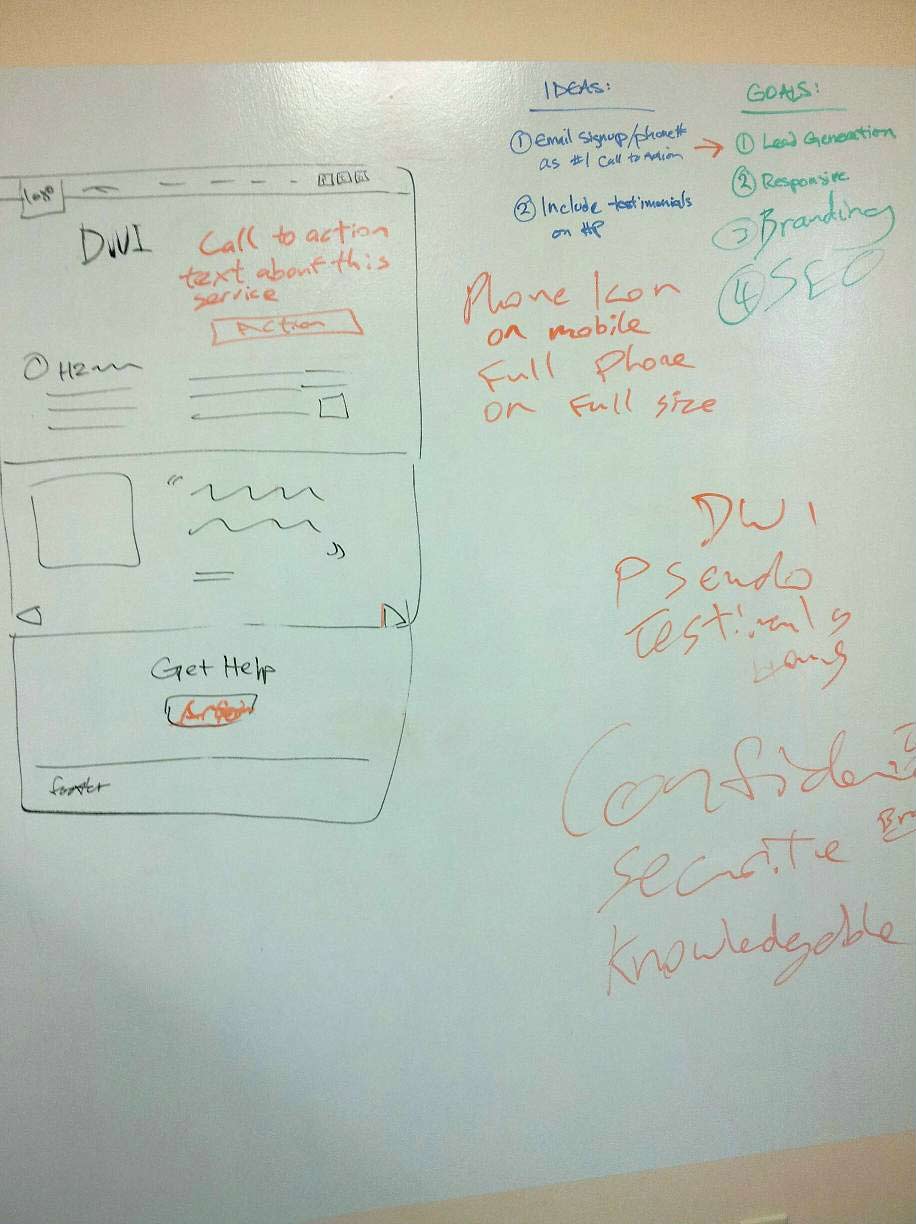 logo
DWI
Call to action
text about this
service
Action
① H2
"
"
Get Help
Action
footer
IDEAS:
① Email signup/phone#
as #1 Call to Action
② Include testimonials
on HP
→
GOALS:
① Lead Generation
② Responsive
③ Branding
④ SEO
Phone Icon
on mobile
Full Phone
on Full size
DWI
Pseudo
Confiden
Knowledgable